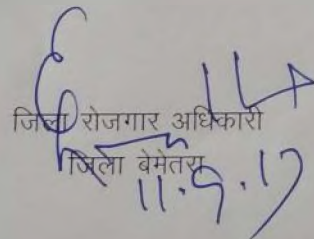 जिला रोजगार अधिकारी
जिला बेमेतरा
11.9.17